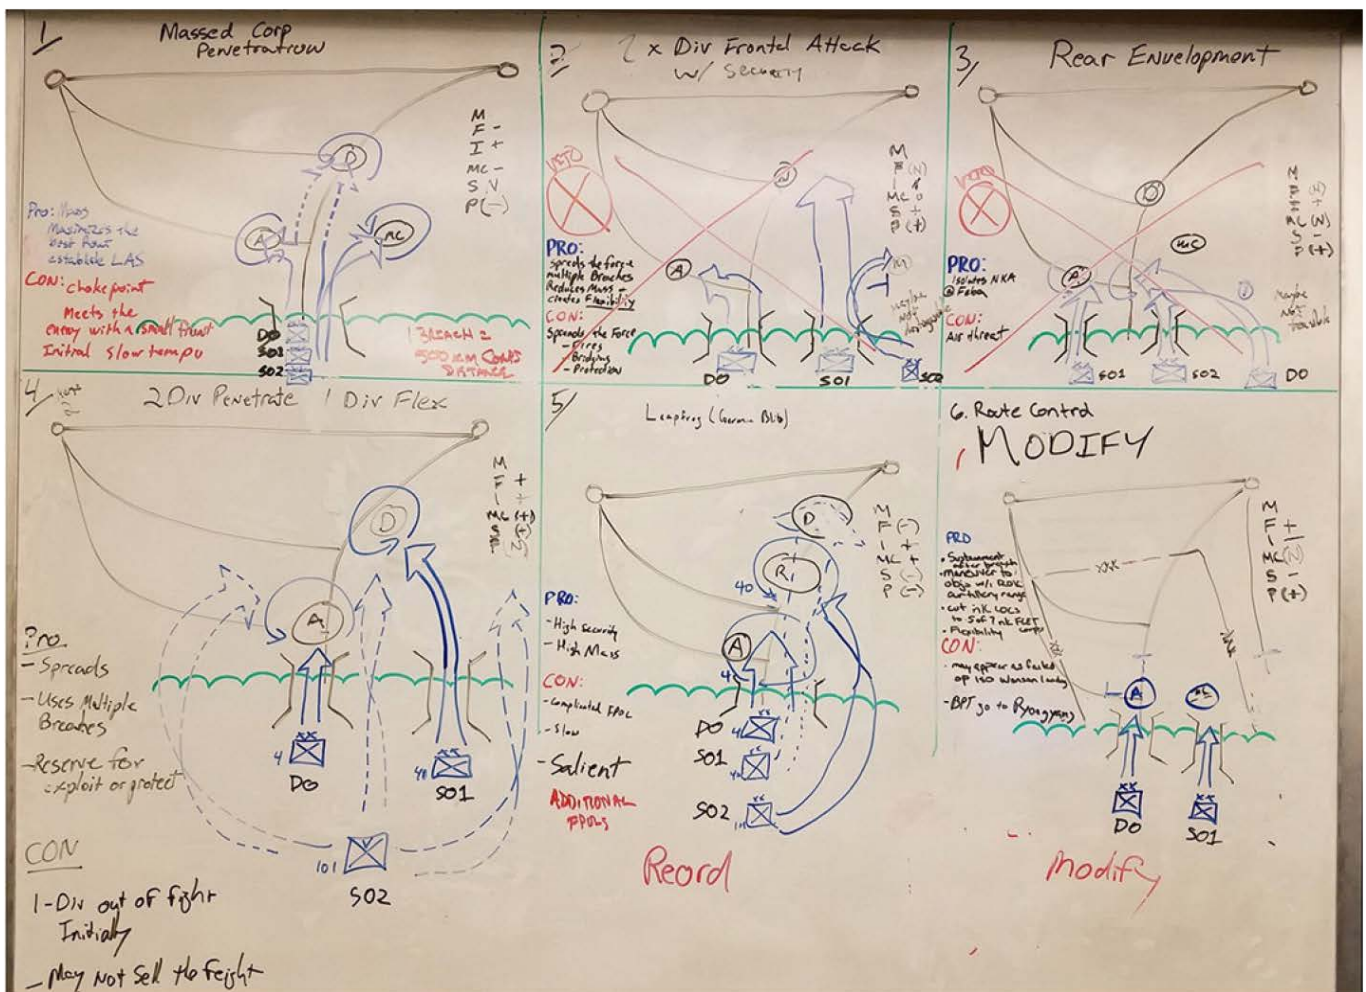 1/
Massed Corp
Penetration
D
A
MC
M
F -
I +
MC -
S V
P(-)
Pro: Mass
Maximizes the
establish LAS
CON: choke point
Meets the
enemy with a small front
Initial slow tempo
DO
SO1
SO2
1 BREACH =
500 KM CONVS
DISTANCE
2/
2 x Div Frontal Attack
w/ Security
VETO
A
M
F (N)
I
MC
S +
P (+)
PRO:
Spreads the force
multiple Breaches
Reduces Mass -
creates Flexibility
CON:
Spreads the Force
- Fires
- Bridging
- Protection
Maybe
Not
DO
SO1
SO2
3/
Rear Envelopment
VETO
D
MC
A
M
F
I +
MC (N)
S -
P (+)
PRO:
Isolates NKA
@ Feba
CON:
Air threat
Maybe
Not
SO1
SO2
DO
4/
2 Div Penetrate 1 Div Flex
D
A
M
F +
I
MC (+)
S
P
Pro.
- Spreads
- Uses Multiple
Breaches
- Reserve for
exploit or protect
4
DO
SO1
101
SO2
CON
1 - Div out of fight
Initially
- May Not Sell the feight
5/
Leapfrog (German Blitz)
D
R
40
A
M
F (-)
I +
MC +
S (-)
P (-)
PRO:
- High Security
- High Mass
CON:
- complicated FPOL
- Slow
- Salient
ADDITIONAL
FPOLS
DO
SO1
SO2
Reord
6. Route Control
MODIFY
M
F +
I
MC (N)
S -
P (+)
PRO
• Sustainment
after breach
• maneuver to
objs w/i ROK
artillery range
• cut nk LOCs
to 5 of 7 nk FLET
corps
• Flexibility
CON:
• may appear as failed
- BPT go to Pyongyang
XXX
XXX
XXX
A
DO
SO1
Modify